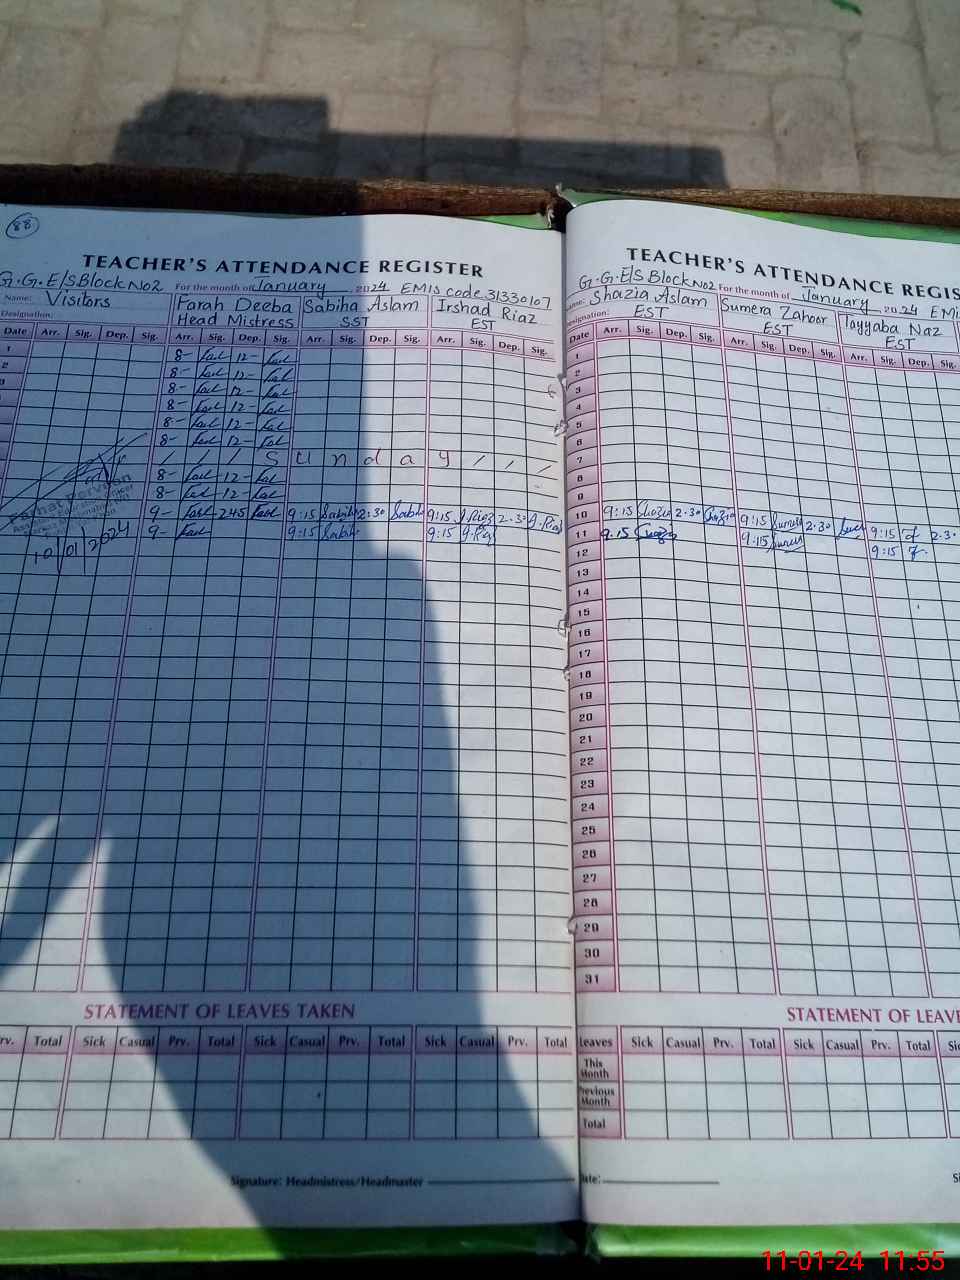 88
TEACHER'S ATTENDANCE REGISTER
G.G.E/S Block No2 For the month of January 2024 EMIS code 31330107
Name: Visitors Farah Deeba Sabiha Aslam Irshad Riaz
Designation: Head Mistress SST EST
Date Arr. Sig. Dep. Sig. Arr. Sig. Dep. Sig. Arr. Sig. Dep. Sig. Arr. Sig. Dep. Sig.
1 8- 12-
2 8- 12-
3 8- 12-
8- 12-
8- 12-
8- 12-
/ / / S u n d a y / / /
8- 12-
8- 12-
9- 2:45 9:15 Sabiha 2:30 Sabiha 9:15 I.Riaz 2-30 I.Riaz
9- 9:15 Sabiha 9:15 I.Riaz
Farhat Perveen
10/01/2024
STATEMENT OF LEAVES TAKEN
Prv. Total Sick Casual Prv. Total Sick Casual Prv. Total Sick Casual Prv. Total
Signature: Headmistress/Headmaster
TEACHER'S ATTENDANCE REGIS
G.G.E/S Block No2 For the month of January 2024 EMI
Name: Shazia Aslam Sumera Zahoor Tayyaba Naz
Designation: EST EST EST
Date Arr. Sig. Dep. Sig. Arr. Sig. Dep. Sig. Arr. Sig. Dep. Sig.
1
2
3
4
5
6
7
8
9
10 9:15 Shazia 2-30 Shazia 9:15 2-30 9:15 2-3
11 9.15 Shazia 9:15 9:15
12
13
14
15
16
17
18
19
20
21
22
23
24
25
26
27
28
29
30
31
STATEMENT OF LEAV
Leaves Sick Casual Prv. Total Sick Casual Prv. Total
This Month
Previous Month
Total
Date:
11-01-24 11:55